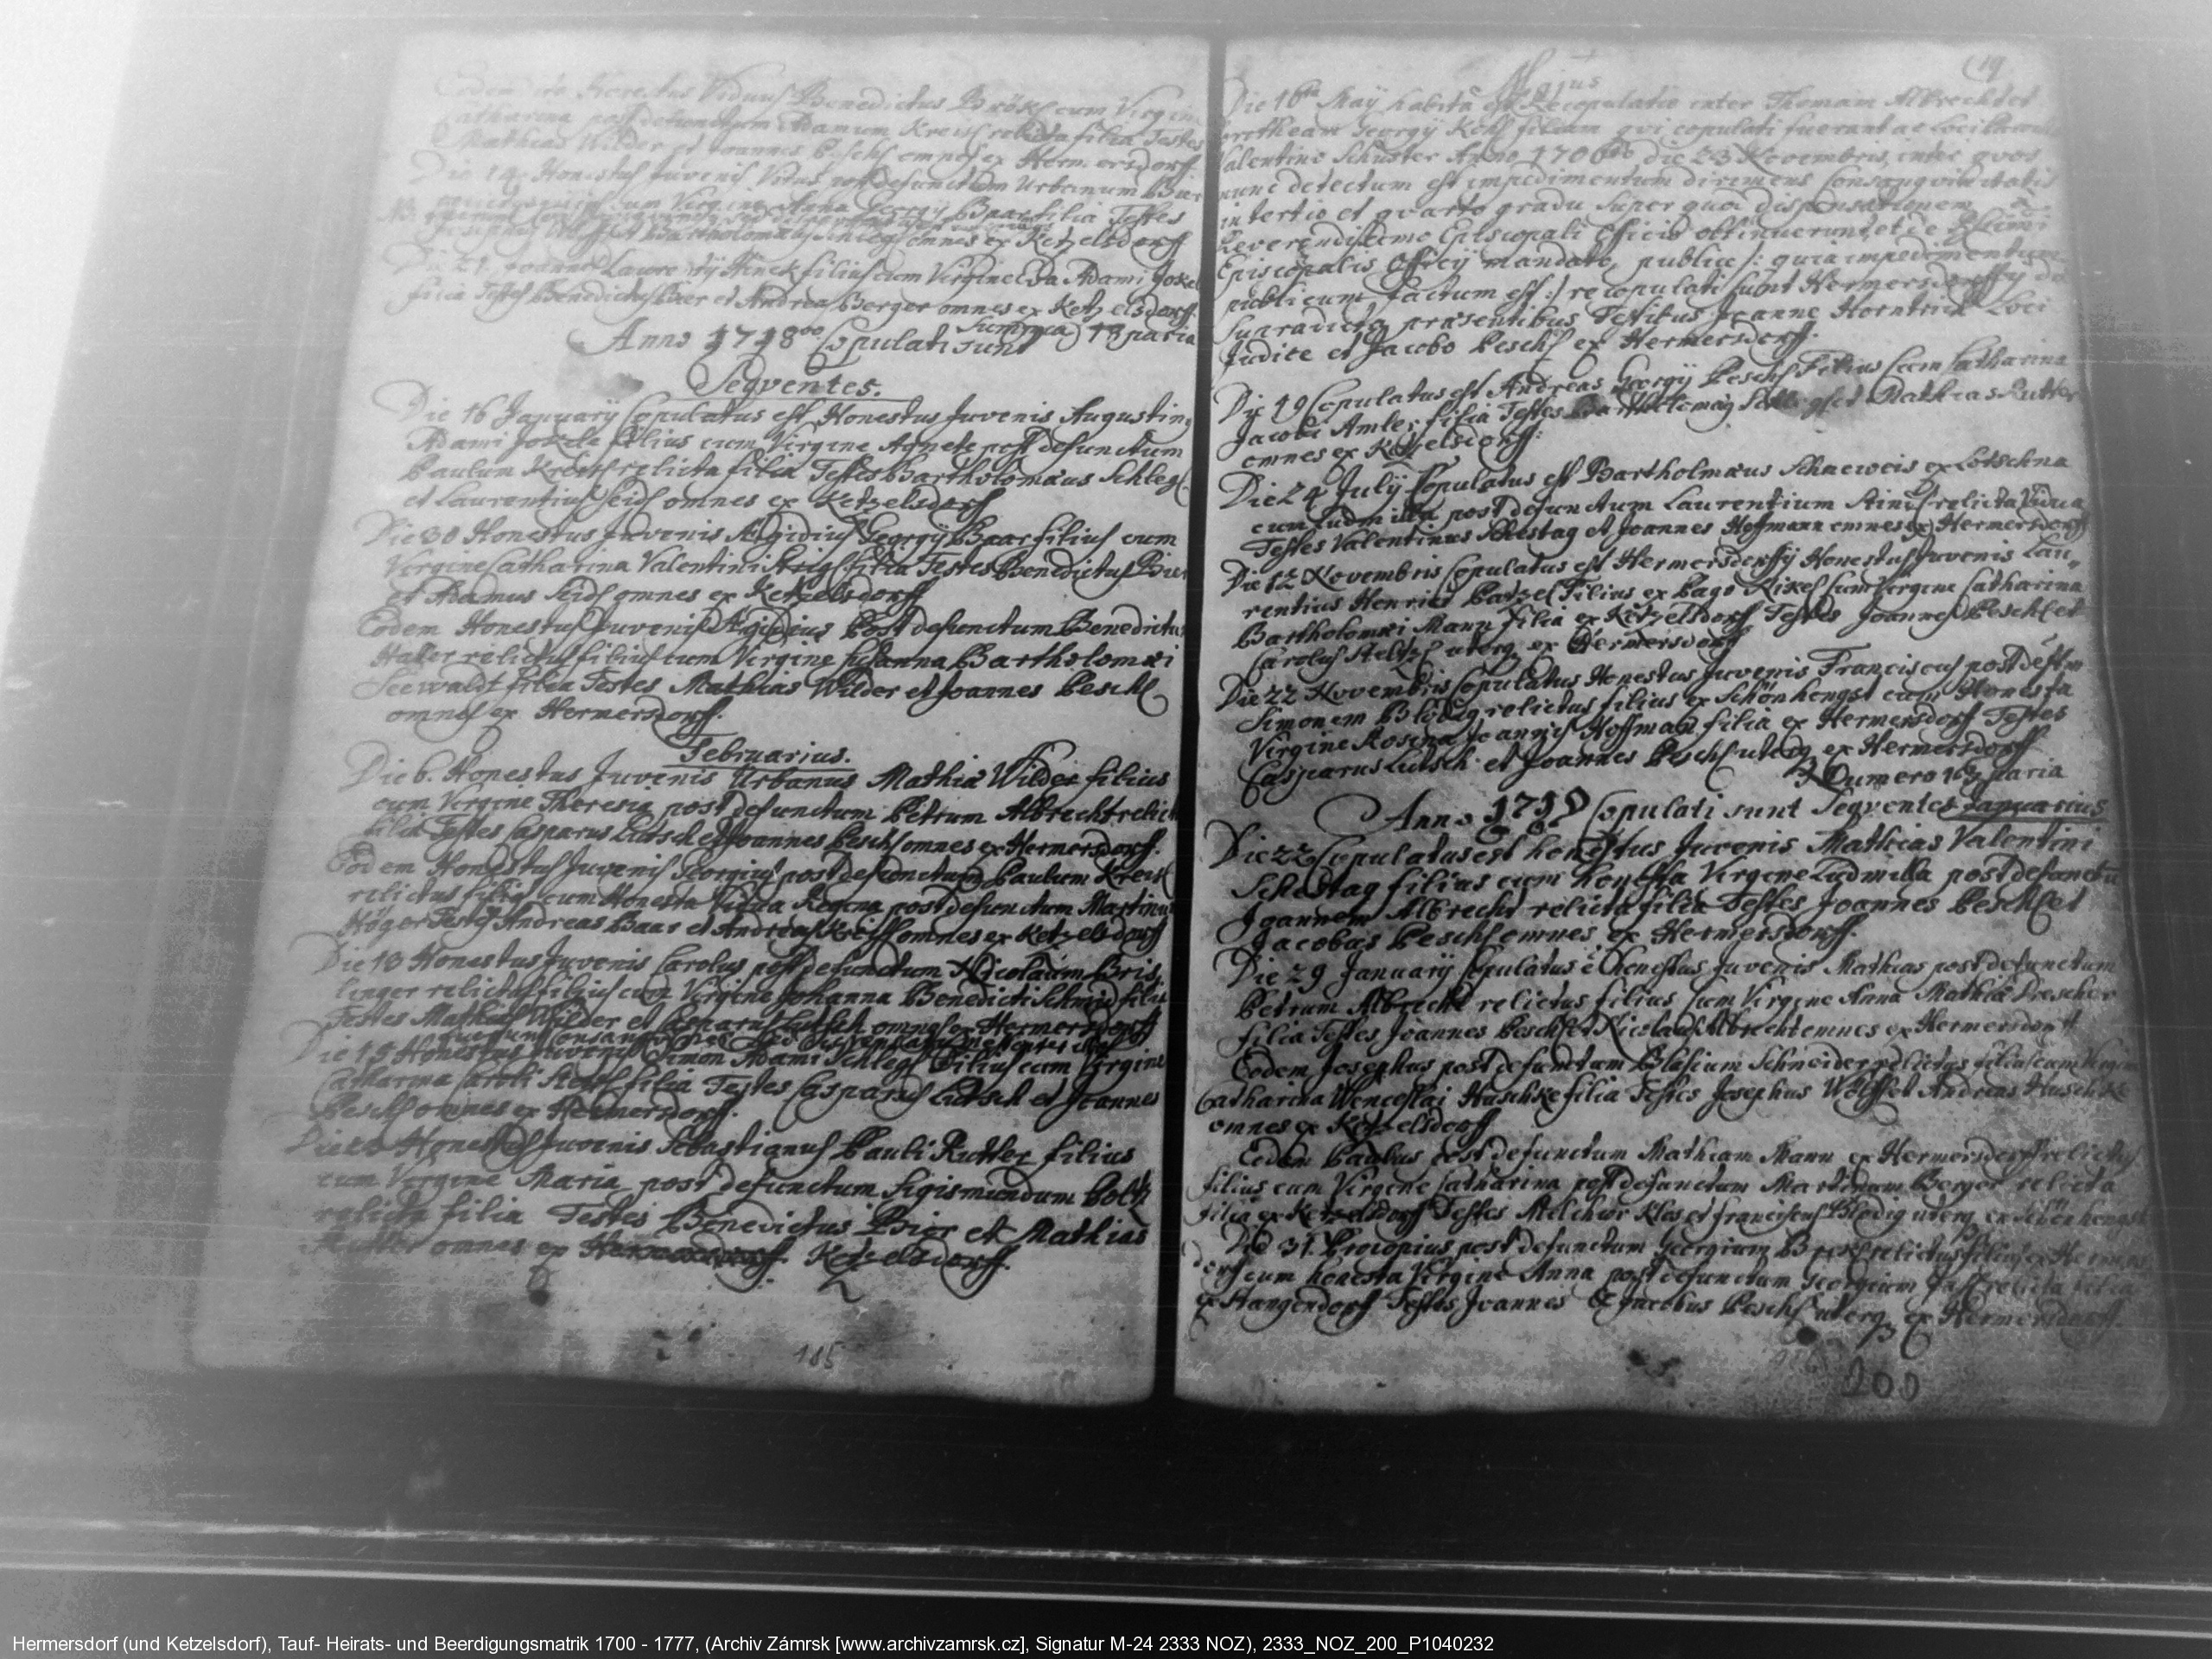 Eodem die Honestus Viduus Benedictus cum Virgine
Catharina post defunctum Adamum Kreisl relicta filia Testes
Mathias Wilder et Joannes Peschl omnes ex Hermersdorff
Die 14 Honestus Juvenis Vitus post defunctum Urbanum Bier
cum Virgine Anna Georgij Baar filia Testes
et Bartholomaeus Schlegl omnes ex Ketzelsdorff
Die 21 Joannes Laurentij filius cum Virgine Adami
filia Testes Benedictus Bier et Andreas Berger omnes ex Ketzelsdorff
Summa 13 paria
Anno 1718 Copulati sunt
Seqventes.
Die 16 Januarij Copulatus est Honestus Juvenis Augustinus
Adami filius cum Virgine Agnete post defunctum
Paulum Kreisl relicta filia Testes Bartholomaeus Schlegl
et Laurentius Seidl omnes ex Ketzelsdorff
Die 30 Honestus Juvenis Aegidius Georgij Baar filius cum
Virgine Catharina Valentini filia Testes Benedictus Bier
et Adamus Seidl omnes ex Ketzelsdorff
Eodem Honestus Juvenis Aegidius Post defunctum Benedictum
Haller relictus filius cum Virgine Susanna Bartholomaei
Seewaldt filia Testes Mathias Wilder et Joannes Peschl
omnes ex Hermersdorff.
Februarius.
Die 6. Honestus Juvenis Urbanus Mathiae Wilder filius
cum Virgine Theresia post defunctum Petrum Albrecht relicta
filia Testes Casparus Lutsch et Joannes Peschl omnes ex Hermersdorff.
Eodem Honestus Juvenis Georgius post defunctum Paulum Kreisl
relictus filius cum Honesta Vidua Regina post defunctum Martinum
Höger Testes Andreas Baar et Andreas Kreisl omnes ex Ketzelsdorff
Die 13 Honestus Juvenis Carolus post defunctum Nicolaum Bris
linger relictus filius cum Virgine Johanna Benedicti Schmid filia
Testes Mathias Wilder et Casparus Lutsch omnes ex Hermersdorff
Die 15 Honestus Juvenis Simon Adami Schlegl Filius cum Virgine
Catharina Caroli filia Testes Casparus Lutsch et Joannes
Peschl omnes ex Hermersdorff.
Honestus Juvenis Sebastianus Pauli Rutter filius
cum Virgine Maria post defunctum Sigismundum
relicta filia Testes Benedictus Bier et Mathias
Rutter omnes ex Hermersdorff. Ketzelsdorff.
185
Majus
Die 16ta Maij habita est Recopulatio inter Thomam Albrecht et
Dorotheam Georgij filiam qvi copulati fuerant ac loci
Valentino Schuster Anno 1706 die 23 Novembris, inter qvos
nunc detectum est impedimentum dirimens Consangvinitatis
in tertio et qvarto gradu super quo dispensationem a
Reverendissimo Episcopali Officio obtinuerunt, et de
Episcopalis Officij mandato, publice /: quia impedimentum
publicum factum est :/ recopulati sunt Hermersdorffij
praesentibus Testibus Joanne Horntrich Loci
Judice et Jacobo Peschl ex Hermersdorff.
Die 19 Copulatus est Andreas Georgij Peschl Filius Cum Catharina
Jacobi Amler filia Testes Bartholomaeus Schlegl et Mathias Rutter
omnes ex Ketzelsdorff:
Die 24 Julij Copulatus est Bartholmaeus ex Lotschna
cum Ludmilla post defunctum Laurentium relicta Vidua
Testes Valentinus Schestag et Joannes Hoffmann omnes ex Hermersdorff
Die 12 Novembris Copulatus est Hermersdorffij Honestus Juvenis Lau,,
rentius Henrici Patzel Filius ex Pago Kikel Cum Virgine Catharina
Bartholomaei Mann filia ex Ketzelsdorff Testes Joannes Peschl et
Carolus uterq ex Hermersdorff
Die 22 Novembris Copulatus Honestus Juvenis Franciscus post
Simonem Blodig relictus filius ex Schönhengst cum Honesta
Virgine Rosina Joannis Hoffman filia ex Hermersdorff Testes
Casparus Lutsch et Joannes Peschl uterq ex Hermersdorff
Numero paria
Anno 1719 Copulati sunt Seqventes Januarius
Die 22 Copulatus est honestus Juvenis Mathias Valentini
Schestag filius cum honesta Virgine Ludmilla post defunctum
Joannem Albrecht relicta filia Testes Joannes Peschl et
Jacobus Peschl omnes ex Hermersdorff.
Die 29 Januarij Copulatus e honestus Juvenis Mathias post defunctum
Petrum Albrecht relictus filius Cum Virgine Anna Mathiae Drescher
filia Testes Joannes Peschl et Nicolaus Albrecht omnes ex Hermersdorff
Eodem Josephus post defunctum Blasium Schneider relictus filius cum Virgine
Catharina Wenceslai Huschke filia Testes Josephus Wolff et Andreas Huschke
omnes ex Ketzelsdorff
Eodem Paulus post defunctum Mathiam Mann ex Hermersdorff relictus
filius cum Virgine Catharina post defunctum Martinum Berger relicta
filia ex Ketzelsdorff Testes Melchior Klos et Franciscus Blodig uterq ex Schönhengst
Die 31. Procopius post defunctum Georgium relictus filius ex Hermers
dorff cum honesta Virgine Anna post defunctum Georgium relicta filia
ex Stangendorff Testes Joannes & Jacobus Peschl uterq ex Hermersdorff.
200
Hermersdorf (und Ketzelsdorf), Tauf- Heirats- und Beerdigungsmatrik 1700 - 1777, (Archiv Zámrsk [www.archivzamrsk.cz], Signatur M-24 2333 NOZ), 2333_NOZ_200_P1040232